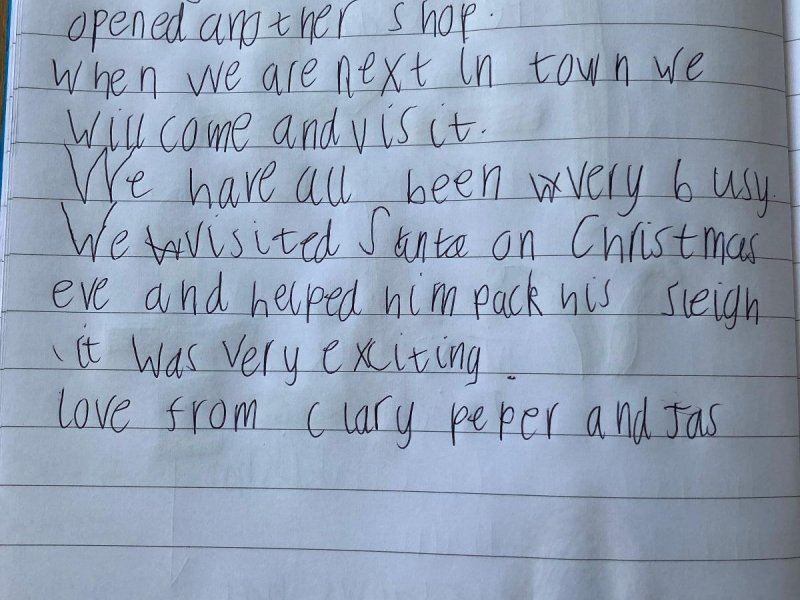 opened another shop.
When we are next in town we
will come and visit.
We have all been very busy.
We visited Santa on Christmas
eve and helped him pack his sleigh
it was very exciting.
love from clary peper and Jas